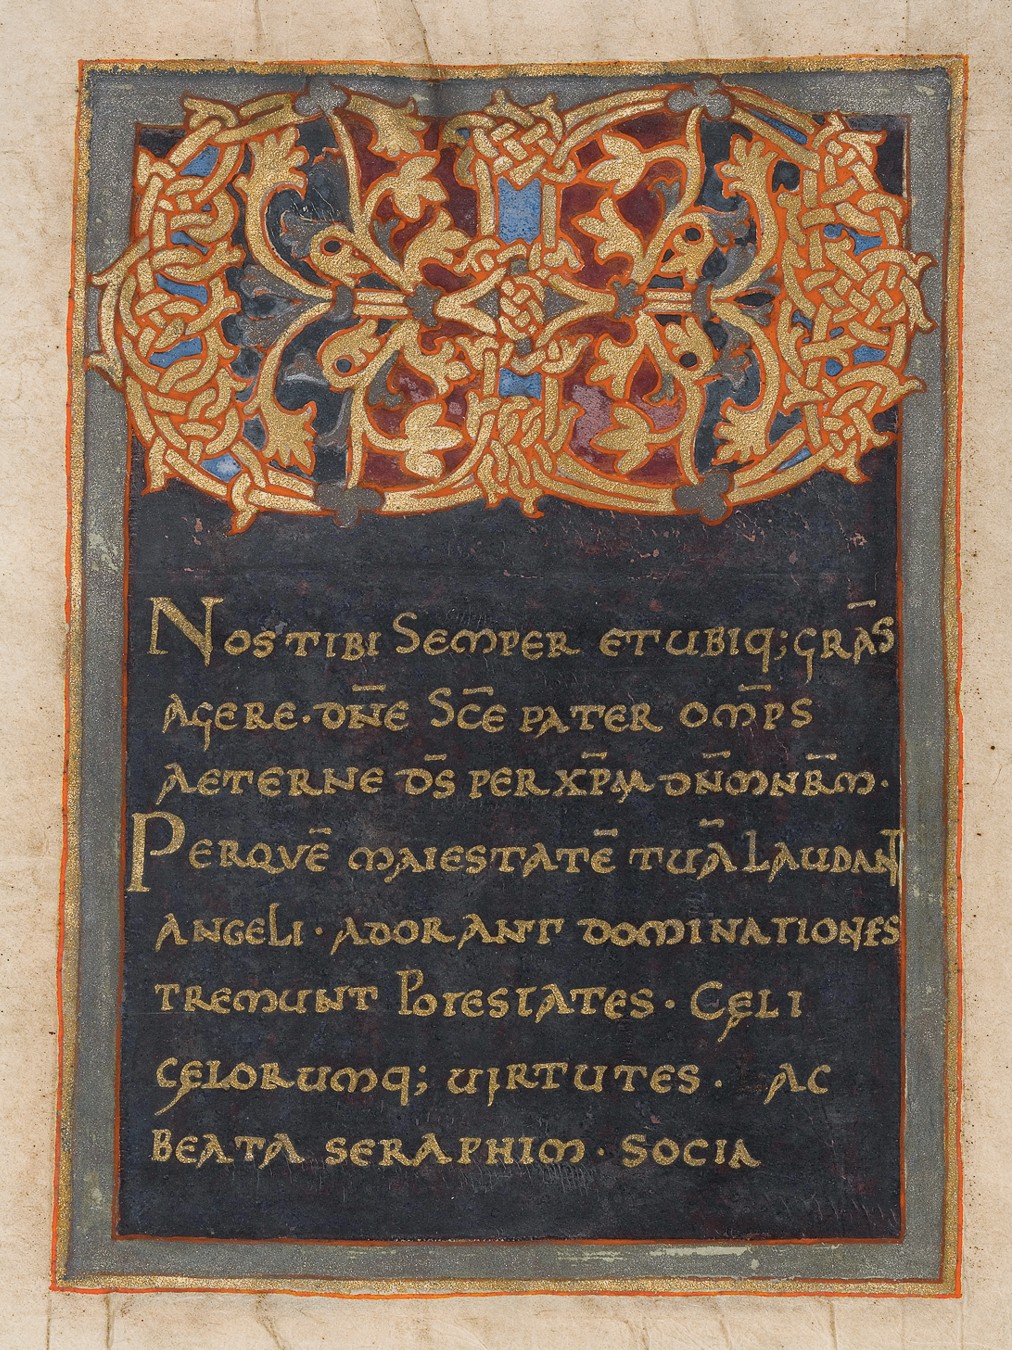 Nos tibi Semper et ubiq; gr̄as
agere. dn̄e Sc̄e pater om̄ps
aeterne d̄s per xp̄m dn̄m nr̄m.
Perquē maiestatē tuā Laudant
angeli · adorant dominationes
tremunt Potestates · Cęli
cęlorumq; uirtutes · ac
beata seraphim · socia